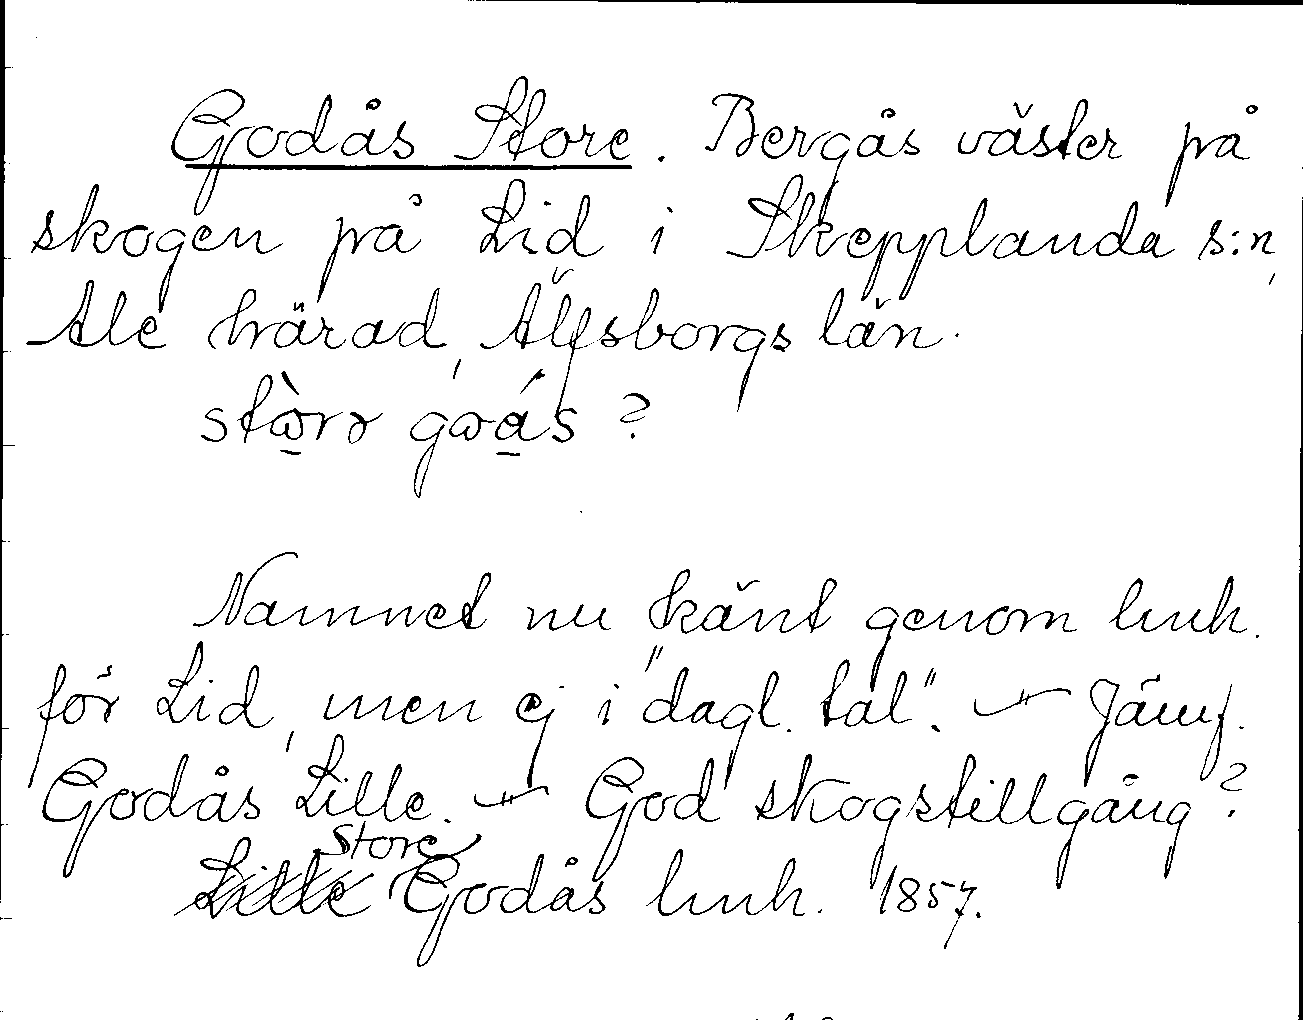 Godås Store. Bergås väster på
skogen på Lid i Skepplanda s:n,
Ale härad, Älfsborgs län.
Namnet nu känt genom lmh.
för Lid, men ej i "dagl. tal". — Jämf.
Godås Lille. — God skogstillgång?
Store
Lille Godås lmh. 1857.